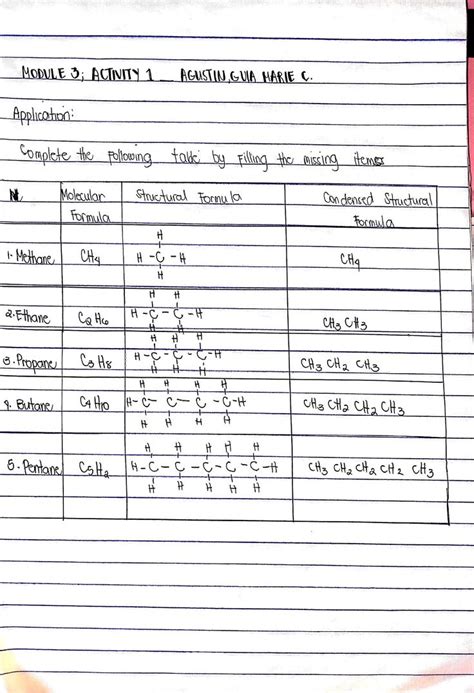 MODULE 3; ACTIVITY 1 _ AGUSTIN, GUIA MARIE C.
Application:
Complete the following table by filling the missing items
N. Molecular Formula Structural Formula Condensed Structural Formula
H
1. Methane CH4 H - C - H CH4
H
H H
2. Ethane C2 H6 H - C - C - H CH3 CH3
H H
H H H
3. Propane C3 H8 H - C - C - C - H CH3 CH2 CH3
H H H
H H H H
4. Butane C4 H10 H - C - C - C - C - H CH3 CH2 CH2 CH3
H H H H
H H H H H
5. Pentane C5 H2 H - C - C - C - C - C - H CH3 CH2 CH2 CH2 CH3
H H H H H